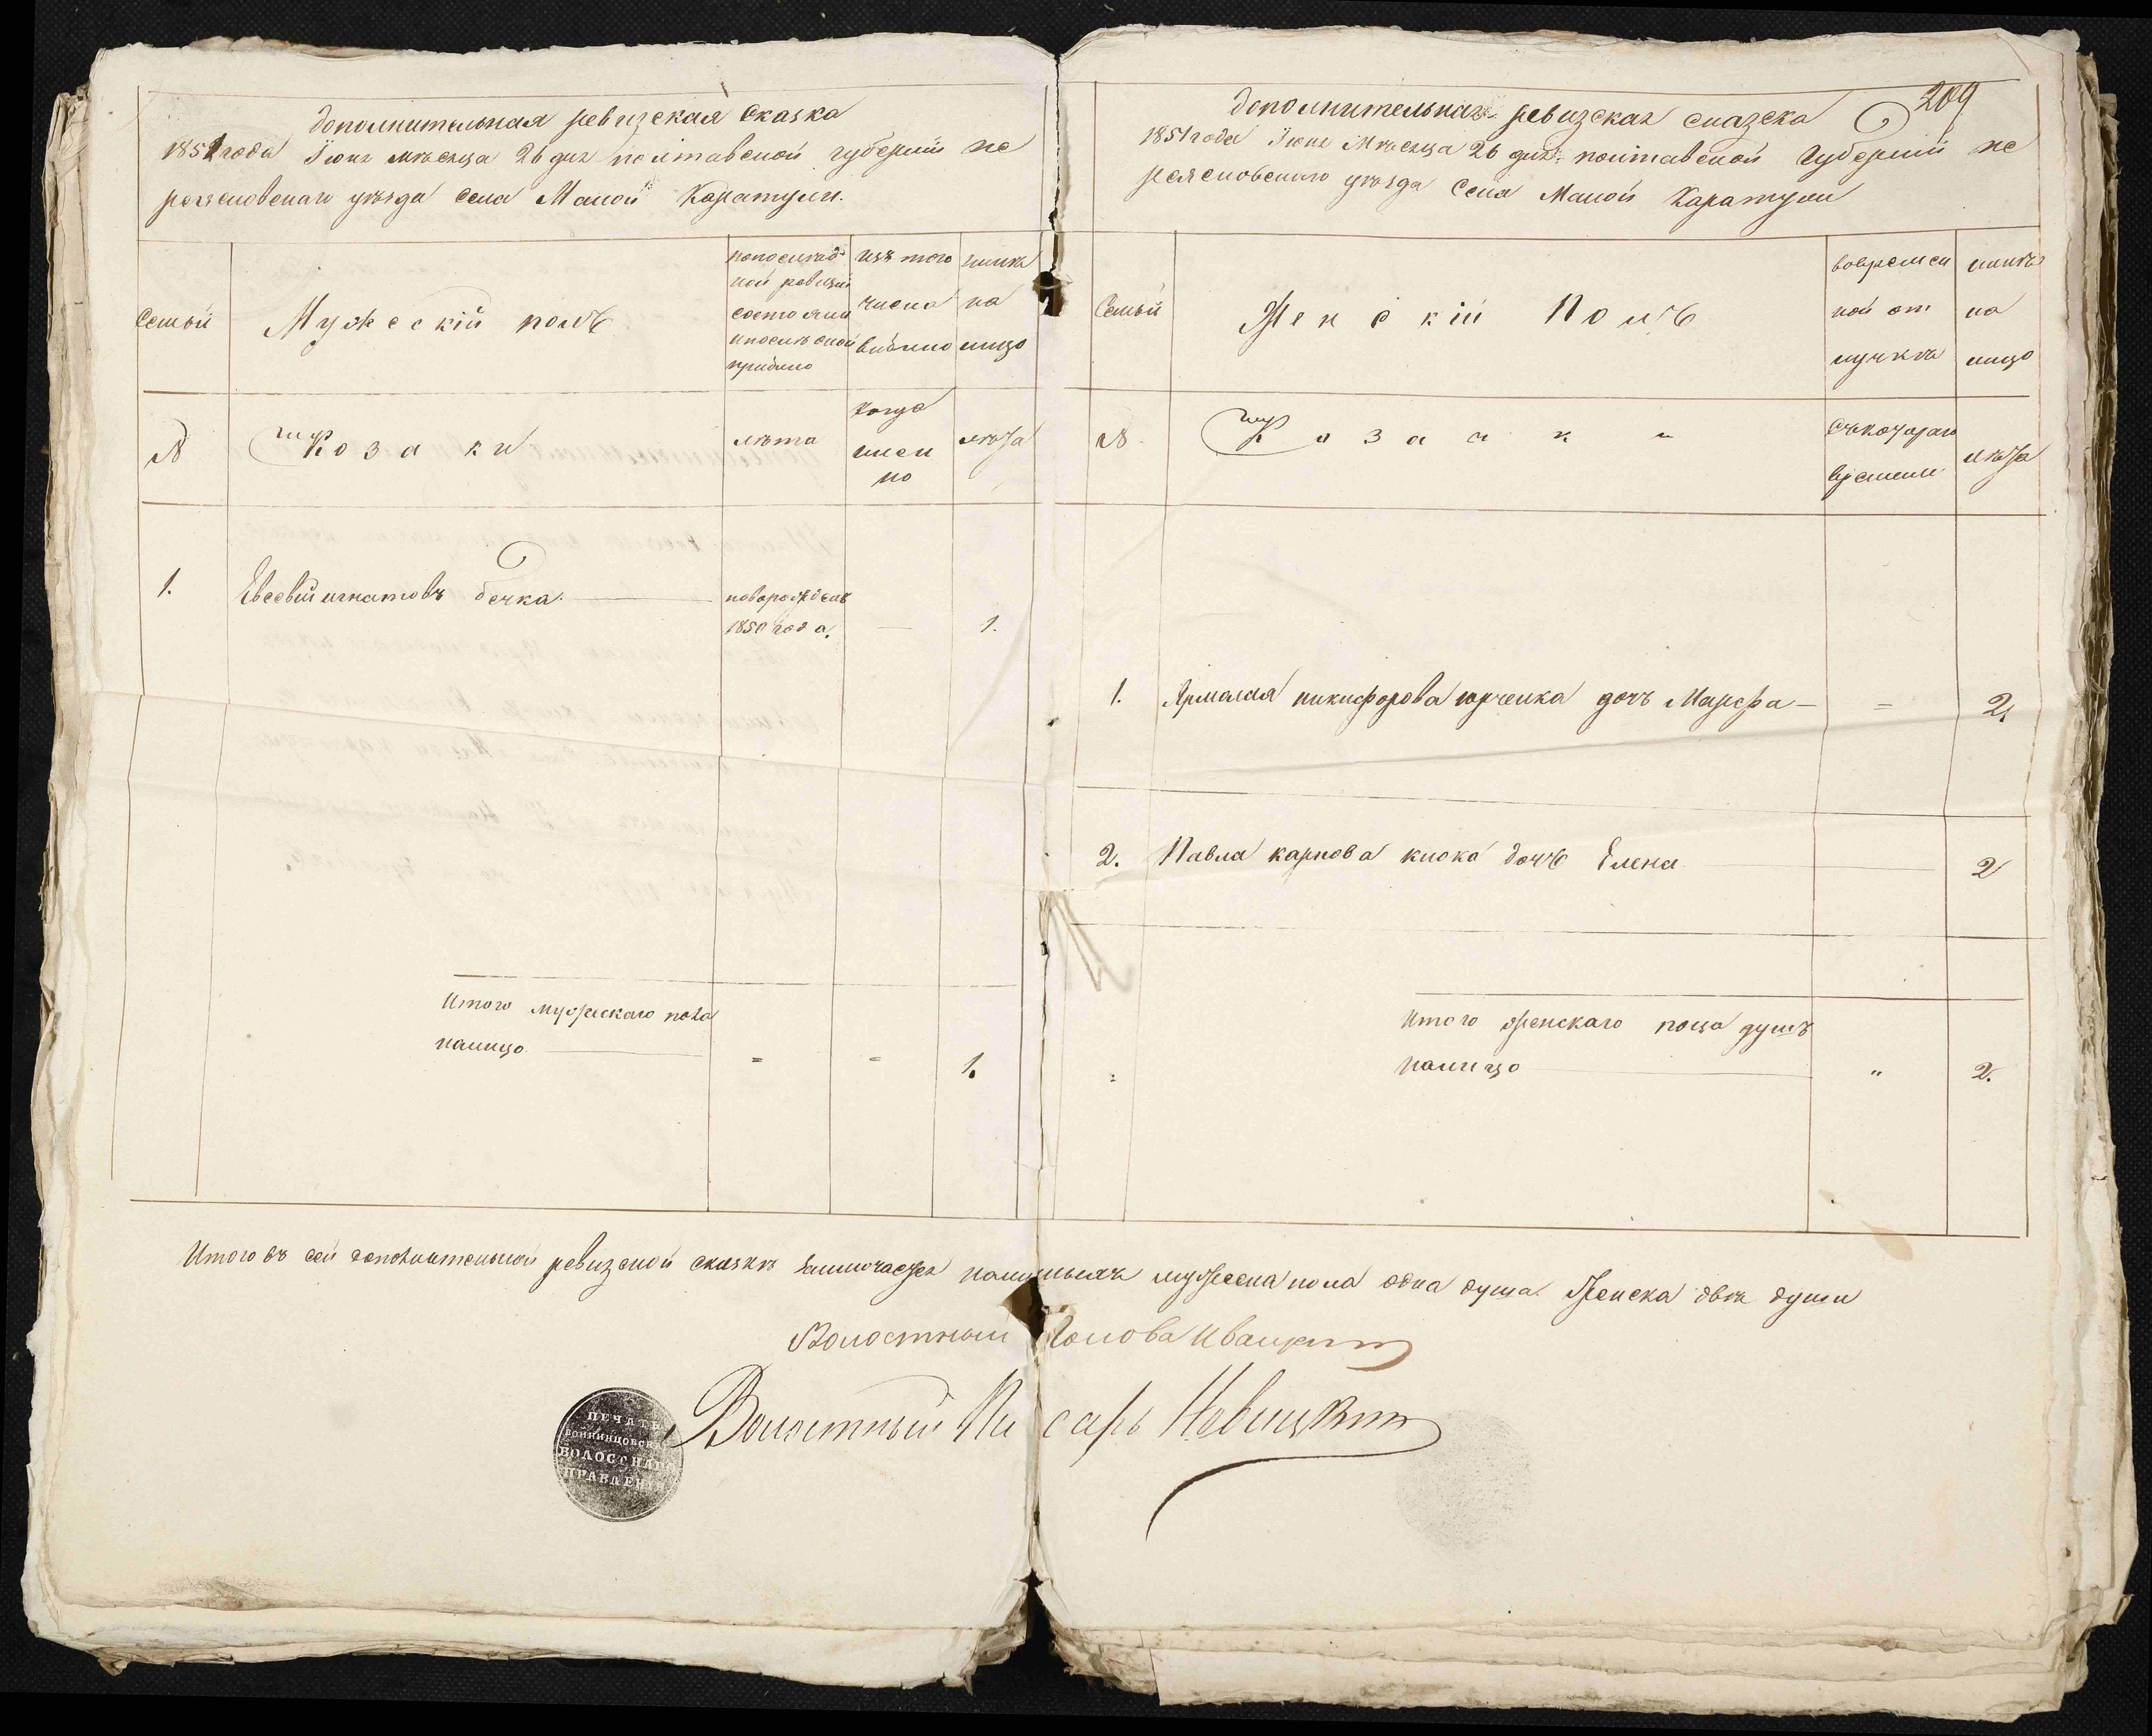 дополнительная ревизская Сказка
1851 года Іюня мѣсяца 26 дня полтавской губерніи пе
реясловскаго уѣзда села Малой Каратули.
Семьи
Мужескій полъ
по послѣд
ной ревизіи
состояли
и послѣ оной
прибыло
изъ того
числа
выбыло
ныне
на
лицо
№
Козаки
лѣта
когда
имен
но
лѣта
1.
Евсевій игнатовъ бечка.
новорожденъ
1850 года.
—
1.
Итого мужескаго пола
налицо
=
=
1.
209
дополнительная ревизская сказска
1851 года Іюня Мѣсяца 26 дня полтавской Губерніи пе
реясловскаго уѣзда Села Малой Каратули
Семьи
Женскій Полъ
вовремен
ной от
лучкѣ
ныне
на
лицо
№
Козачки
съкотораго
времени
лѣта
1.
Ярмолая никифорова юрченка дочъ Марфа —
=
2.
2.
Павла карпова клока дочъ Елена
2
Итого женскаго пола душъ
налицо
"
2.
Итого въ сей дополнительной ревизской сказкѣ заключается наличныхъ мужеска пола одна душа женска двѣ души
Волостный Голова Иваицкій
Волостный Писарь Новицкій
ПЕЧАТЬ
ВОЛОСТНАГО
ПРАВЛЕНІЯ